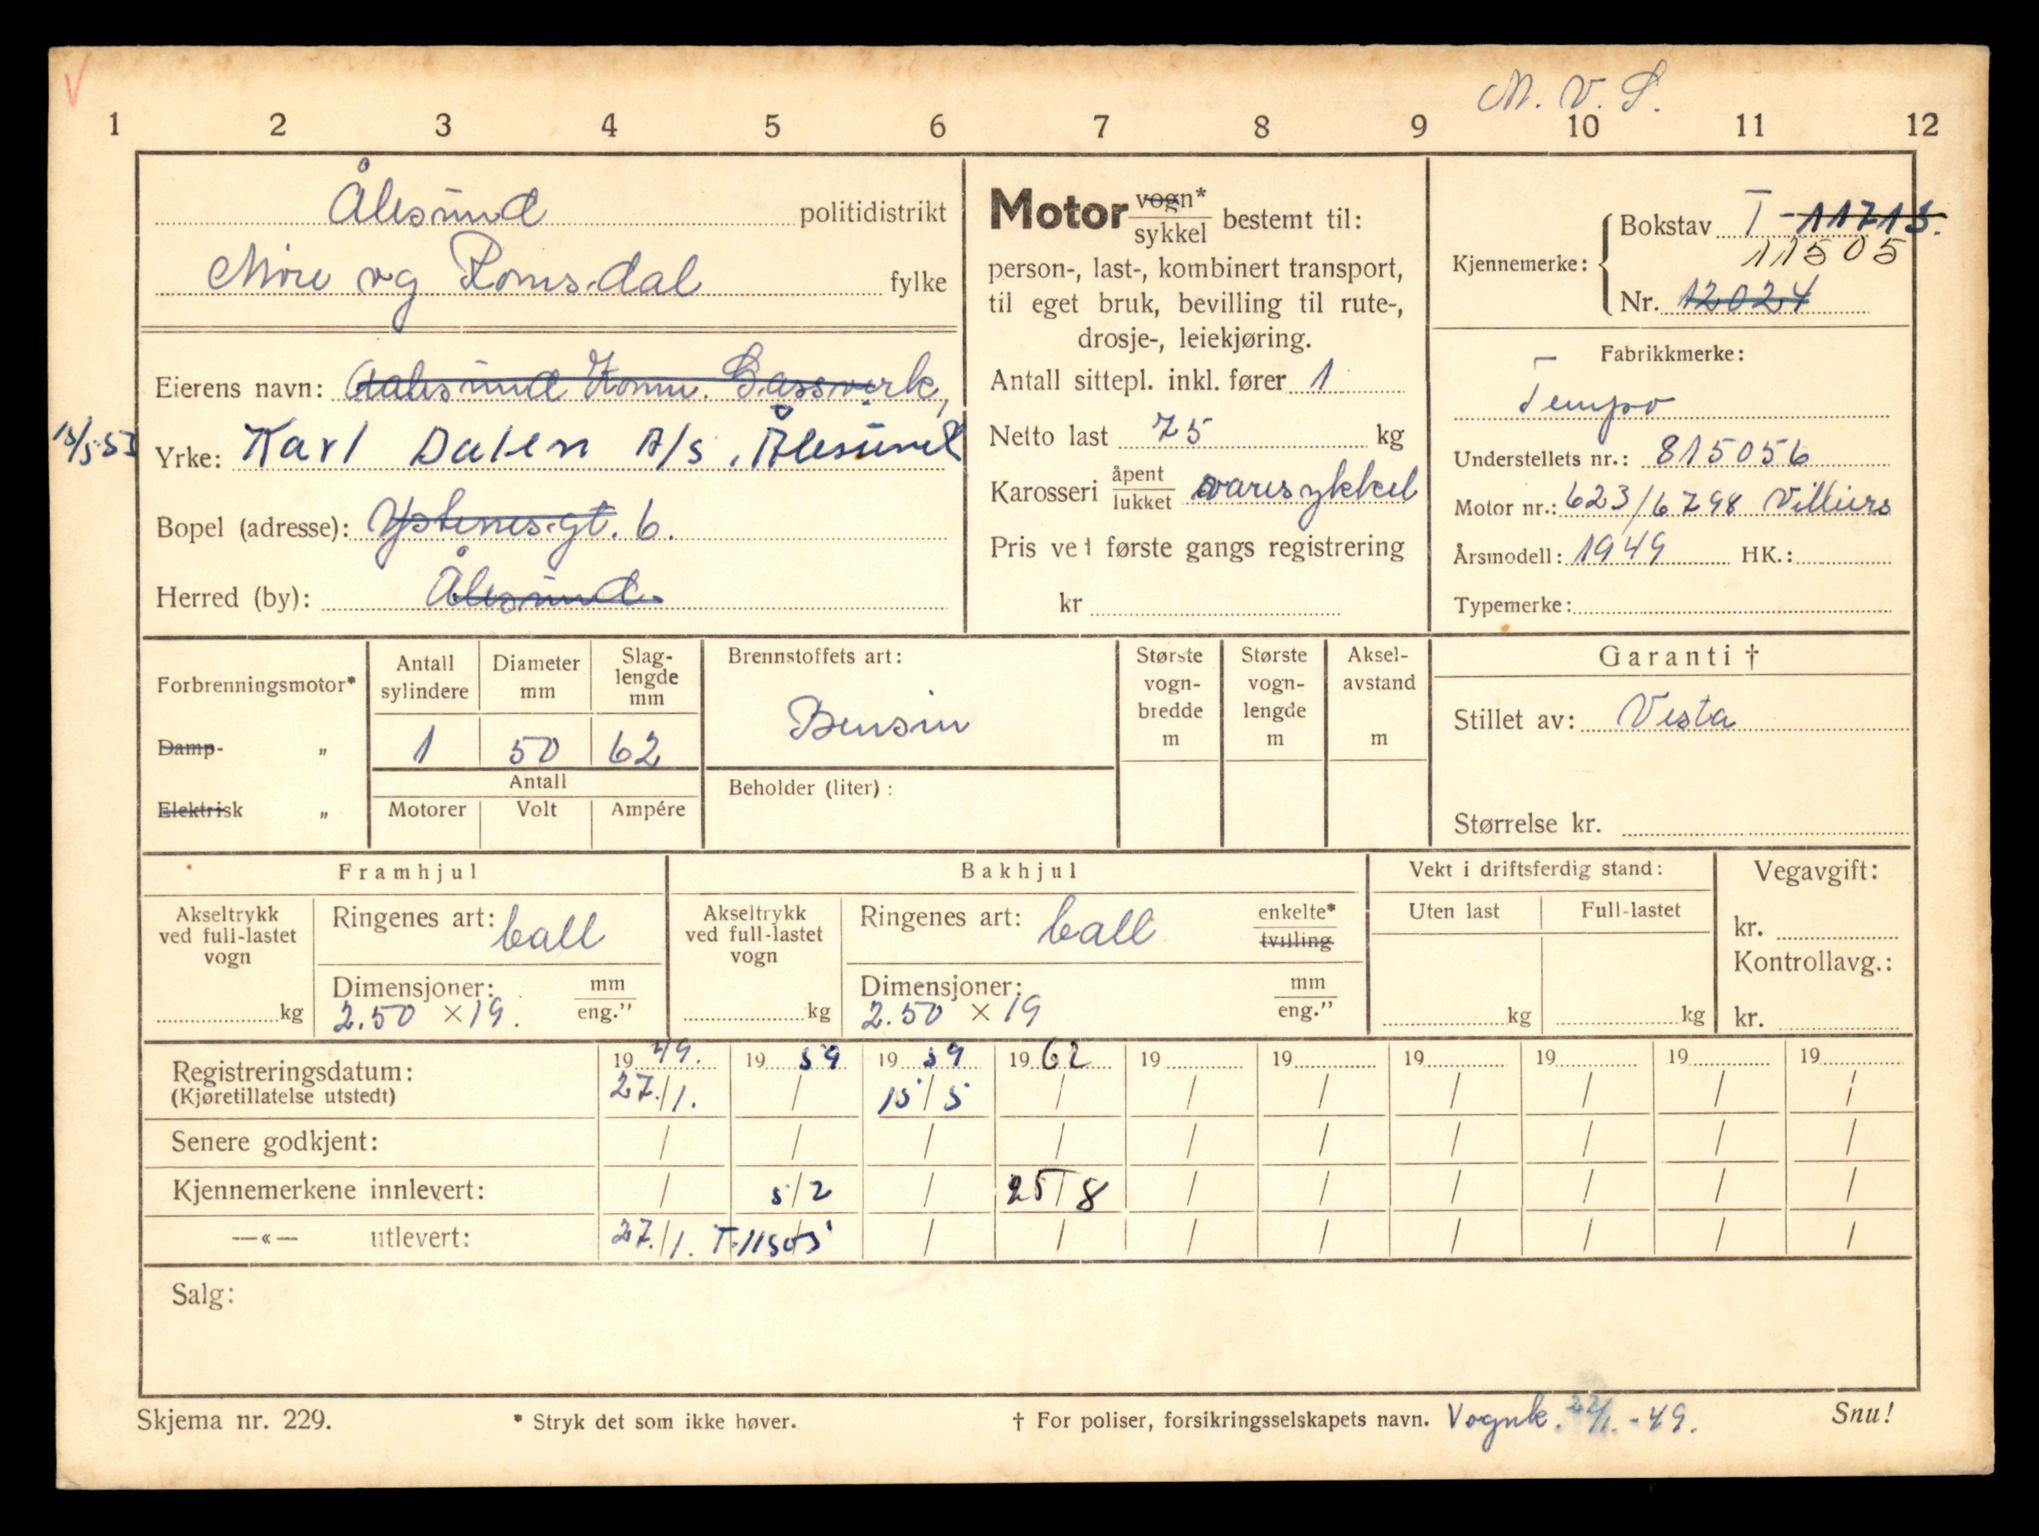 M. V. S.
1 2 3 4 5 6 7 8 9 10 11 12
Ålesund politidistrikt
Møre og Romsdal fylke
Eierens navn: Aalesund Komm. Gassverk,
15/5-53
Yrke: Karl Dalen A/S, Ålesund
Bopel (adresse): Ystenesgt. 6.
Herred (by): Ålesund.
Motor vogn* sykkel bestemt til:
person-, last-, kombinert transport,
til eget bruk, bevilling til rute-,
drosje-, leiekjøring.
Antall sittepl. inkl. fører 1
Netto last 75 kg
Karosseri åpent lukket varesykkel
Pris ved første gangs registrering
kr
Kjennemerke:
Bokstav T-11715.
11505
Nr. 12024
Fabrikkmerke:
Tempo
Understellets nr.: 815056
Motor nr.: 623/6798 Villiers
Årsmodell: 1949 HK.:
Typemerke:
Forbrenningsmotor*
Damp- „
Elektrisk „
Antall sylindere
Diameter mm
Slag-lengde mm
1 50 62
Antall
Motorer Volt Ampére
Brennstoffets art:
Bensin
Beholder (liter):
Største vogn-bredde m
Største vogn-lengde m
Aksel-avstand m
Garanti †
Stillet av: Vesta
Størrelse kr.
Framhjul
Akseltrykk ved full-lastet vogn
kg
Ringenes art: ball
Dimensjoner: mm
2.50 × 19. eng.”
Bakhjul
Akseltrykk ved full-lastet vogn
kg
Ringenes art: ball enkelte* tvilling
Dimensjoner: mm
2.50 × 19 eng.”
Vekt i driftsferdig stand:
Uten last Full-lastet
kg kg
Vegavgift:
kr.
Kontrollavg.:
kr.
Registreringsdatum: 19 49. 19 59 19 59 19 62 19 19 19 19 19 19
(Kjøretillatelse utstedt) 27./1. / 15/5 / / / / / / /
Senere godkjent: / / / / / / / / / /
Kjennemerkene innlevert: / 5/2 / 25/8 / / / / / /
—«— utlevert: 27./1. T-11505 / / / / / / / /
Salg:
Skjema nr. 229.
* Stryk det som ikke høver.
† For poliser, forsikringsselskapets navn. Vognk. 22/1.-49.
Snu!